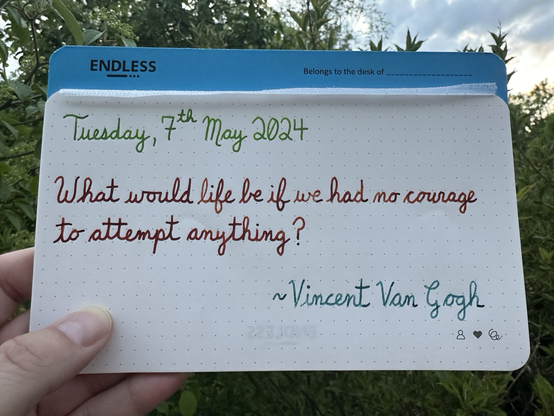 ENDLESS
Belongs to the desk of
Tuesday, 7th May 2024
What would life be if we had no courage
to attempt anything?
~Vincent Van Gogh
ENDLESS